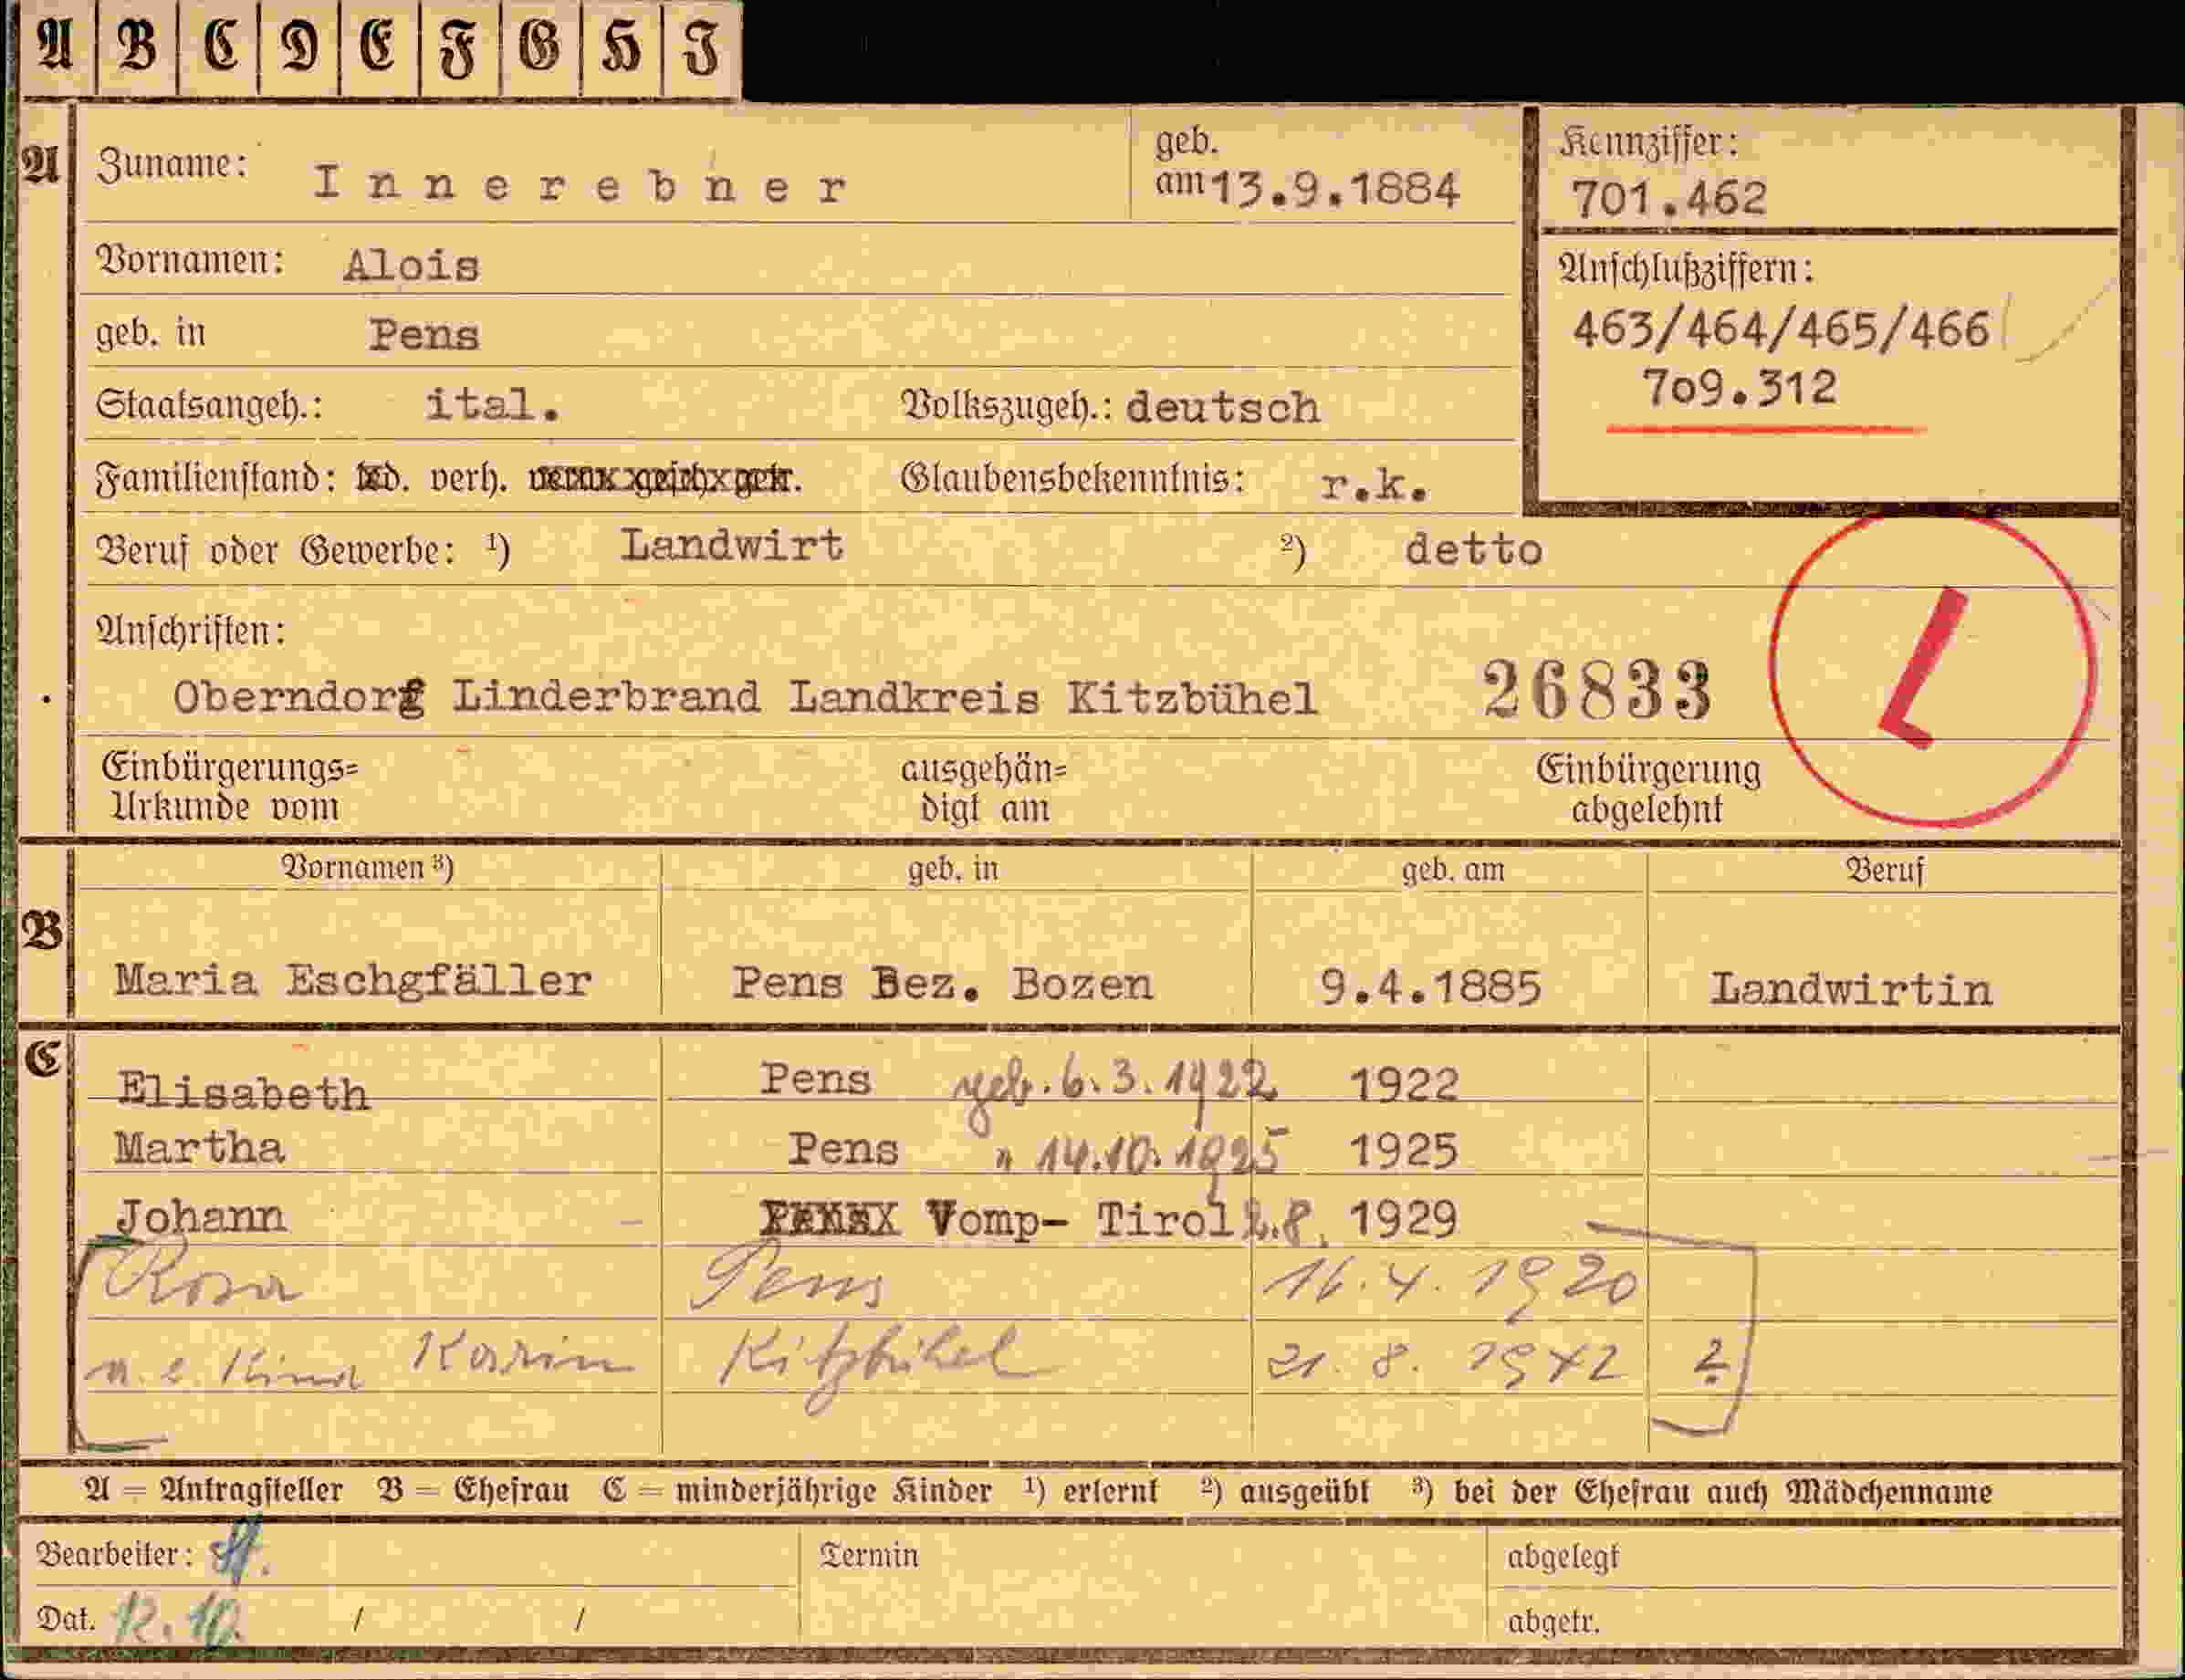 A B C D E F G H I
A Zuname: Innerebner geb. am 13.9.1884
Kennziffer:
701.462
Vornamen: Alois
Anschlußziffern:
463/464/465/466
709.312
geb. in Pens
Staatsangeh.: ital. Volkszugeh.: deutsch
Familienstand: led. verh. verw. gesch. getr. Glaubensbekenntnis: r.k.
Beruf oder Gewerbe: ¹) Landwirt ²) detto
Anschriften:
Oberndorf Linderbrand Landkreis Kitzbühel 26833
L
Einbürgerungs=
Urkunde vom
ausgehän=
digt am
Einbürgerung
abgelehnt
Vornamen ³) geb. in geb. am Beruf
B
Maria Eschgfäller Pens Bez. Bozen 9.4.1885 Landwirtin
C
Elisabeth Pens geb. 6.3.1922 1922
Martha Pens " 14.10.1925 1925
Johann Vomp- Tirol 2.8. 1929
Rosa Pens 16.4.1920
u. e. Kind Karin Kitzbühel 21.8.1942 ?
A = Antragsteller B = Ehefrau C = minderjährige Kinder ¹) erlernt ²) ausgeübt ³) bei der Ehefrau auch Mädchenname
Bearbeiter: Termin abgelegt
Dat. 12.10. / / abgetr.